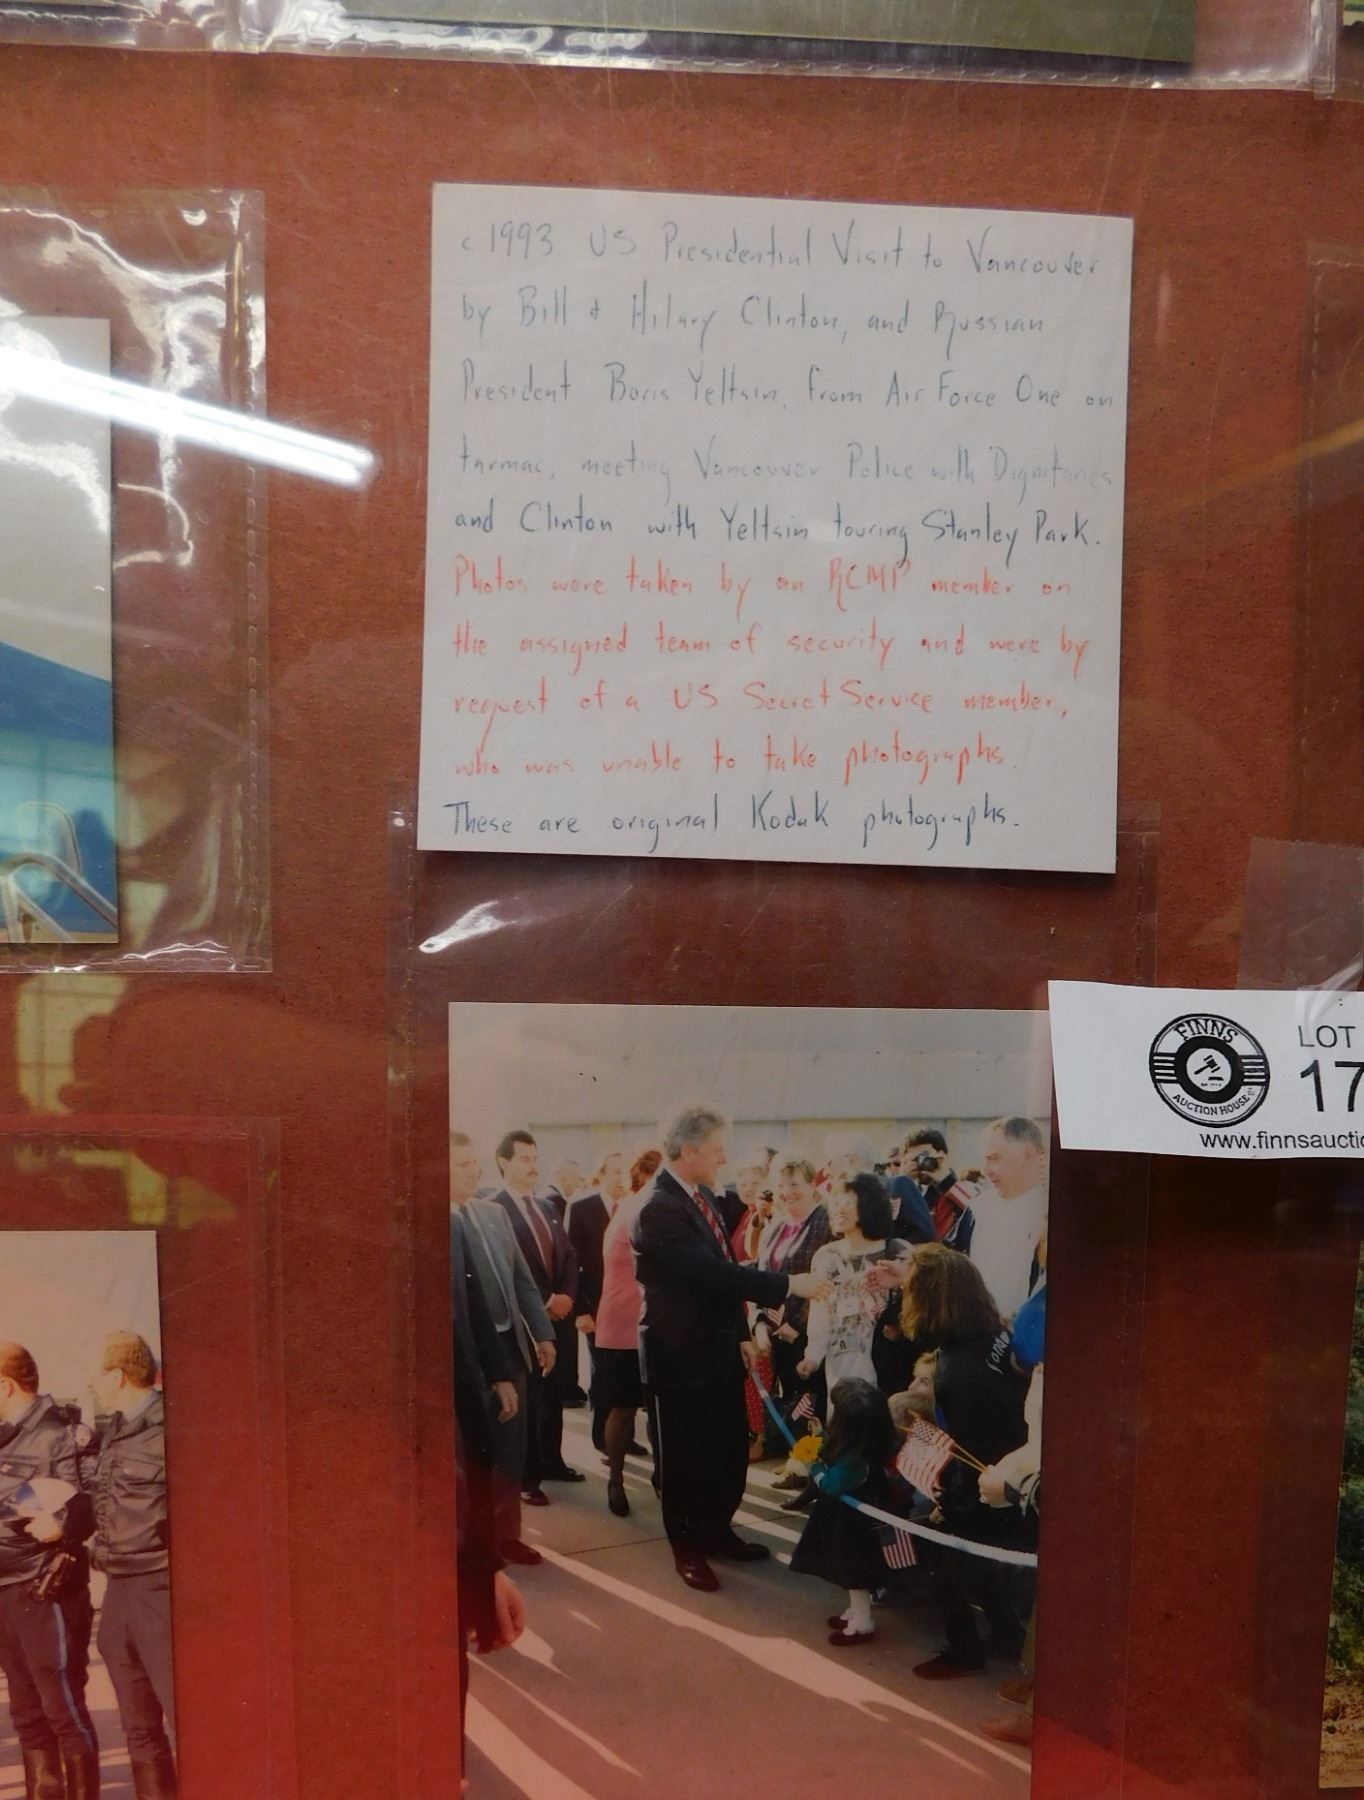 c 1993 US Presidential Visit to Vancouver
by Bill + Hilary Clinton, and Russian
President Boris Yeltsin, from Air Force One on
tarmac, meeting Vancouver Police with Dignitaries
and Clinton with Yeltsin touring Stanley Park.
Photos were taken by an RCMP member on
the assigned team of security and were by
request of a US Secret Service member,
who was unable to take photographs.
These are original Kodak photographs.
FINNS
AUCTION HOUSE
LOT
17
www.finnsauctio